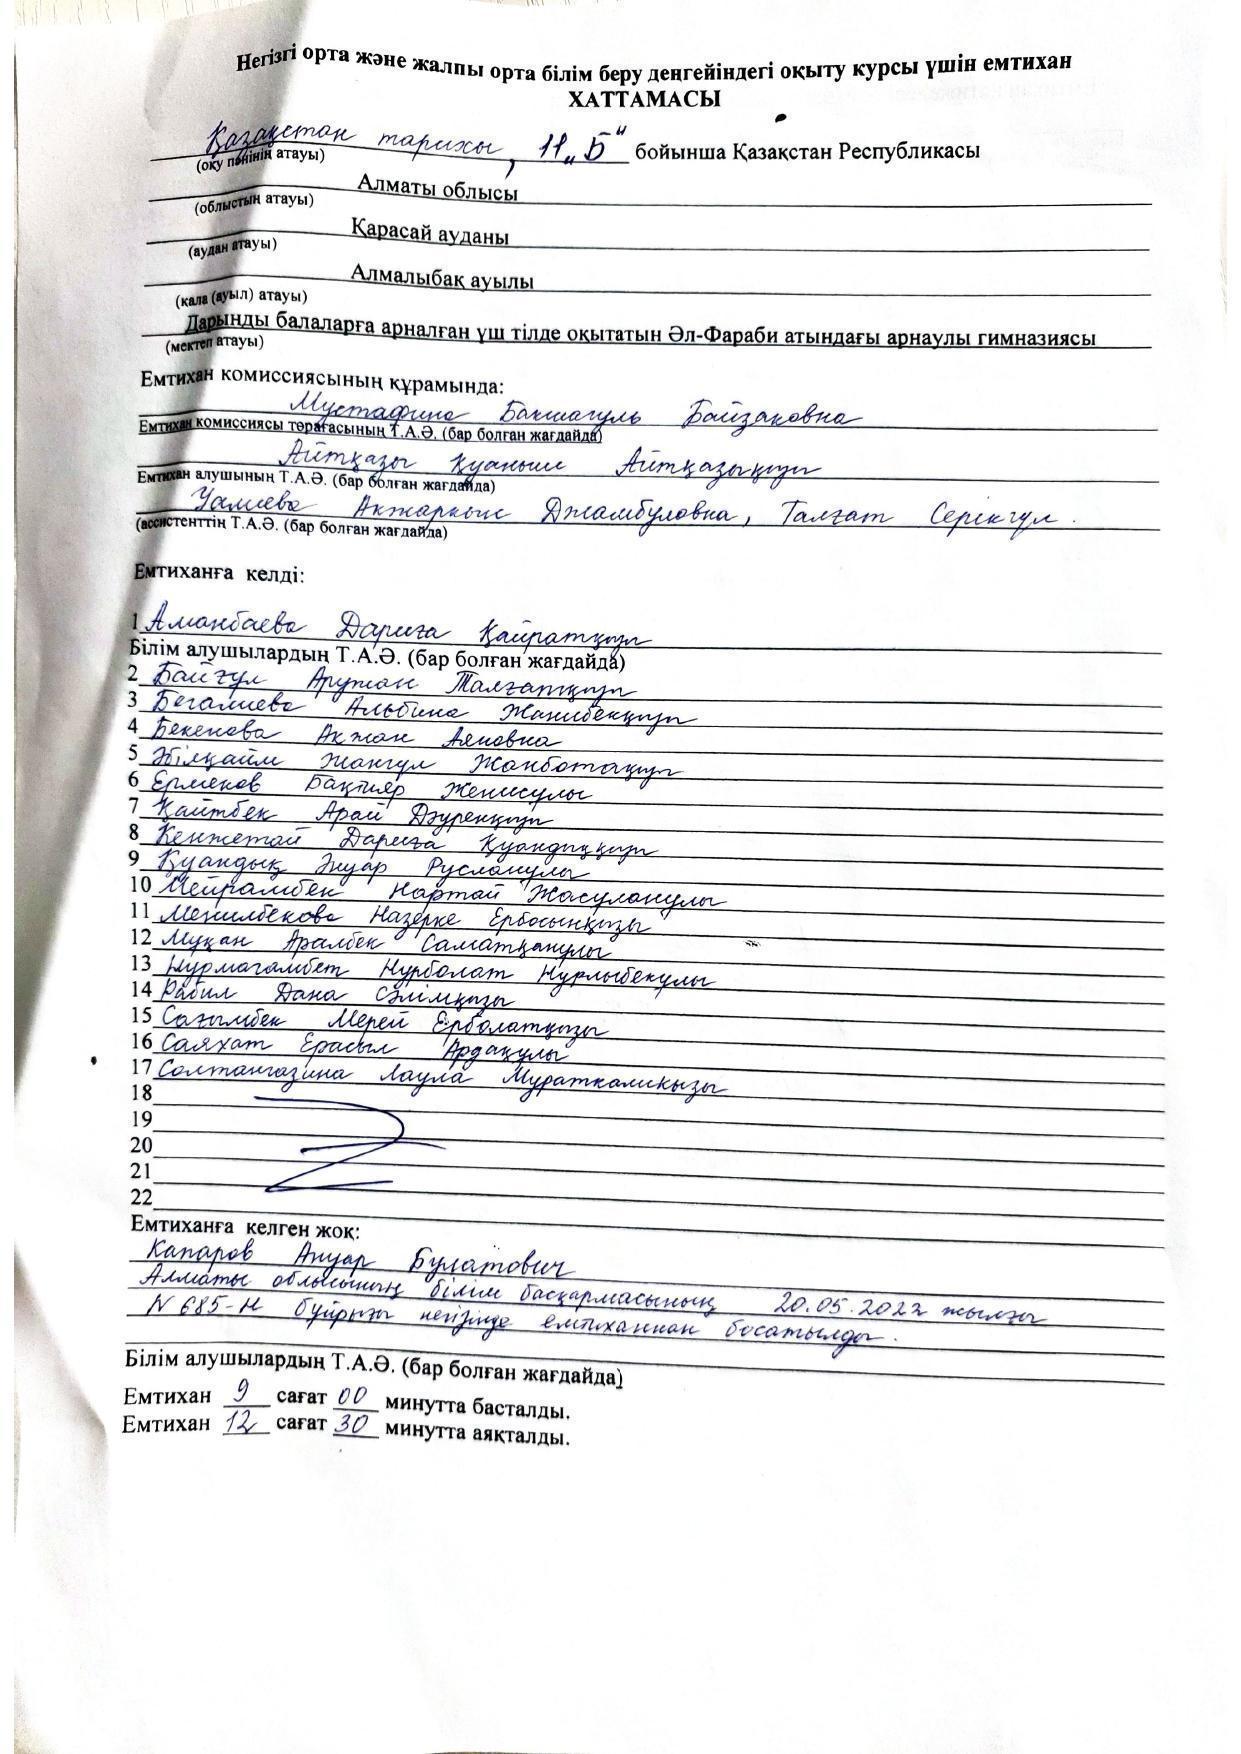 Негізгі орта және жалпы орта білім беру деңгейіндегі оқыту курсы үшін емтихан
ХАТТАМАСЫ
Қазақстан тарихы, 11 „Б" бойынша Қазақстан Республикасы
(оқу пәнінің атауы)
Алматы облысы
(облыстың атауы)
Қарасай ауданы
(аудан атауы)
Алмалыбақ ауылы
(қала (ауыл) атауы)
Дарынды балаларға арналған үш тілде оқытатын Әл-Фараби атындағы арнаулы гимназиясы
(мектеп атауы)
Емтихан комиссиясының құрамында:
Мустафина Бакшагуль Байзаковна
Емтихан комиссиясы төрағасының Т.А.Ә. (бар болған жағдайда)
Айтқазы Қуаныш Айтқазықызы
Емтихан алушының Т.А.Ә. (бар болған жағдайда)
Уалиева Актаркыс Джамбуловна, Талғат Серікгүл.
(ассистенттің Т.А.Ә. (бар болған жағдайда)
Емтиханға келді:
1 Аманбаева Дариға Қайратқызы
Білім алушылардың Т.А.Ә. (бар болған жағдайда)
2 Байгұл Аружан Талғатқызы
3 Бегалиева Альбина Жанибекқызы
4 Бекенова Акжан Аяновна
5 Әбілқайм Жангүл Жанботақызы
6 Ермеков Бақтияр Женисұлы
7 Қайтбек Арай Дәуренқызы
8 Кенжетай Дариға Қуандыққызы
9 Қуандық Әнуар Русланұлы
10 Мейрамбек Нартай Жасуланұлы
11 Менлибекова Назерке Ербосынқызы
12 Мұқан Аралбек Саматқанұлы
13 Нурмагамбет Нұрболат Нұрлыбекұлы
14 Рабил Дана Сәлімқызы
15 Сағымбек Мерей Ерболатқызы
16 Саяхат Ерасыл Ардақұлы
17 Солтангазина Лаула Мураткаликызы
18
19
20
21
22
Емтиханға келген жоқ:
Капаров Ануар Булатович
Алматы облысының білім басқармасының 20.05.2022 жылғы
N 685-Н бұйрығы негізінде емтиханнан босатылды.
Білім алушылардың Т.А.Ә. (бар болған жағдайда)
Емтихан 9 сағат 00 минутта басталды.
Емтихан 12 сағат 30 минутта аяқталды.